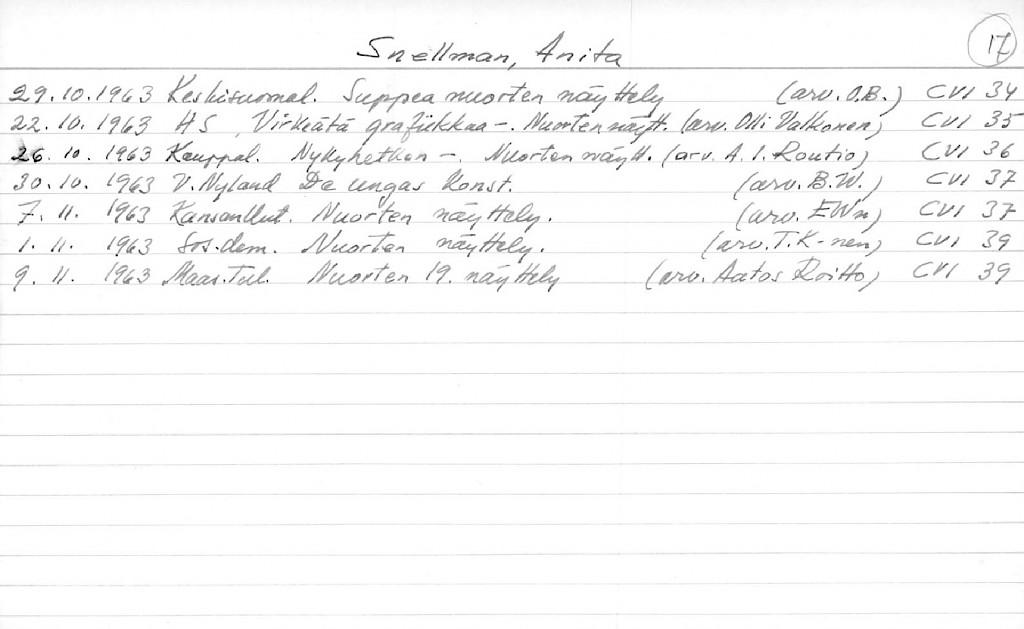 Snellman, Anita
17
29.10.1963 Keskisuomal. Suppea nuorten näyttely (arv. O.B.) CVI 34
22.10.1963 HS, Virkeätä grafiikkaa -. Nuorten näytt. (arv. Olli Valkonen) CVI 35
26.10.1963 Kauppal. Nykyhetken -. Nuorten näytt. (arv. A.I. Routio) CVI 36
30.10.1963 V. Nyland De ungas Konst. (arv. B.W.) CVI 37
7.11.1963 Kansan Uut. Nuorten näyttely. (arv. EWn) CVI 37
1.11.1963 Sos.dem. Nuorten näyttely. (arv. T.K-nen) CVI 39
9.11.1963 Maas.Tul. Nuorten 19. näyttely (arv. Aatos Roitto) CVI 39